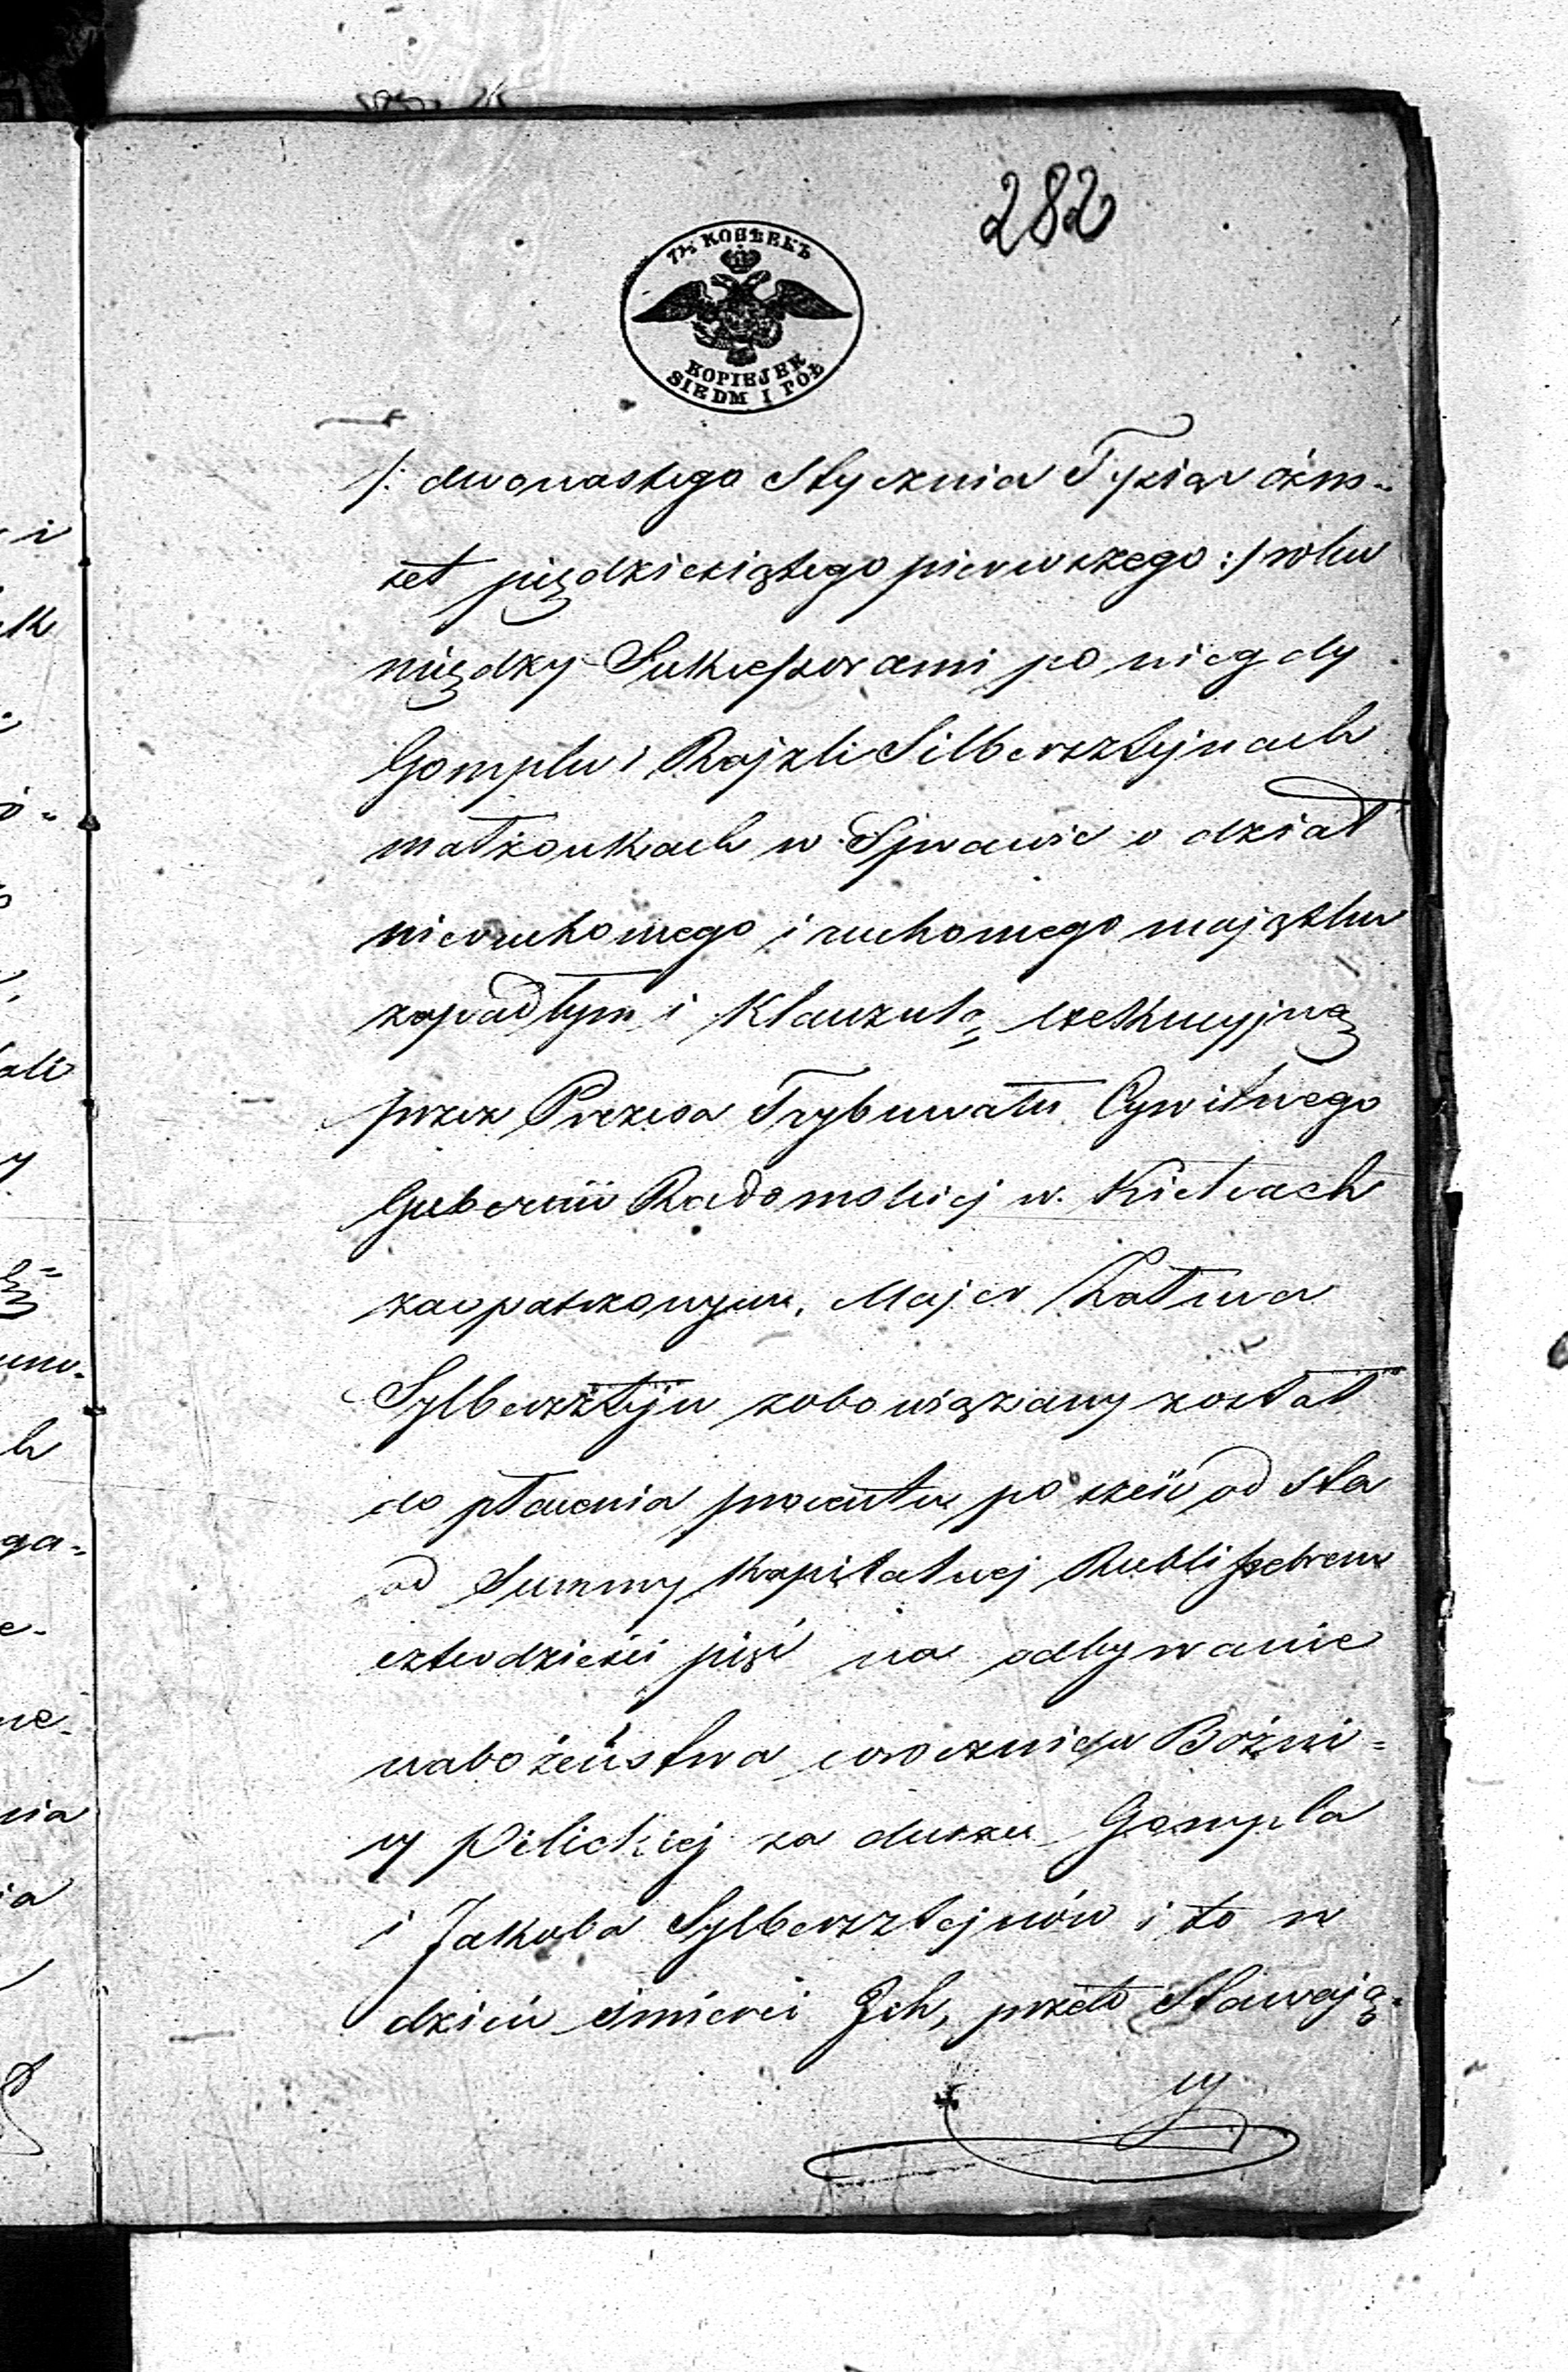 282
7½ КОПѢЕКЪ
KOPIEJEK
SIEDM I PÓŁ
/: dwonastego Stycznia Tysiąc ośm-
set piędziesiątego pierwszego :/ roku
między Sukcessorami po niegdy
Gomplu i Rajzli Silbersztejnach
małżonkach w Sprawie o dział
nieruchomego i ruchomego majątku
zapadłym i Klauzulą exekucyjną
przez Prezesa Trybunału Cywilnego
Gubernii Radomskiej w Kielcach
zaopatrzonym, Majer
Sylbersztijn zobowiązany został
do płacenia procentu po sześć od sta
od Summy Kapitalnej Rubli srebrem
czterdzieści pięć na odbywanie
nabożeństwa corocznie w Bożni-
cy Pilickiej za duszu Gompla
i Jakuba Sylbersztejnów i to w
dzień śmierci Ich, przeto Stawają-
cy